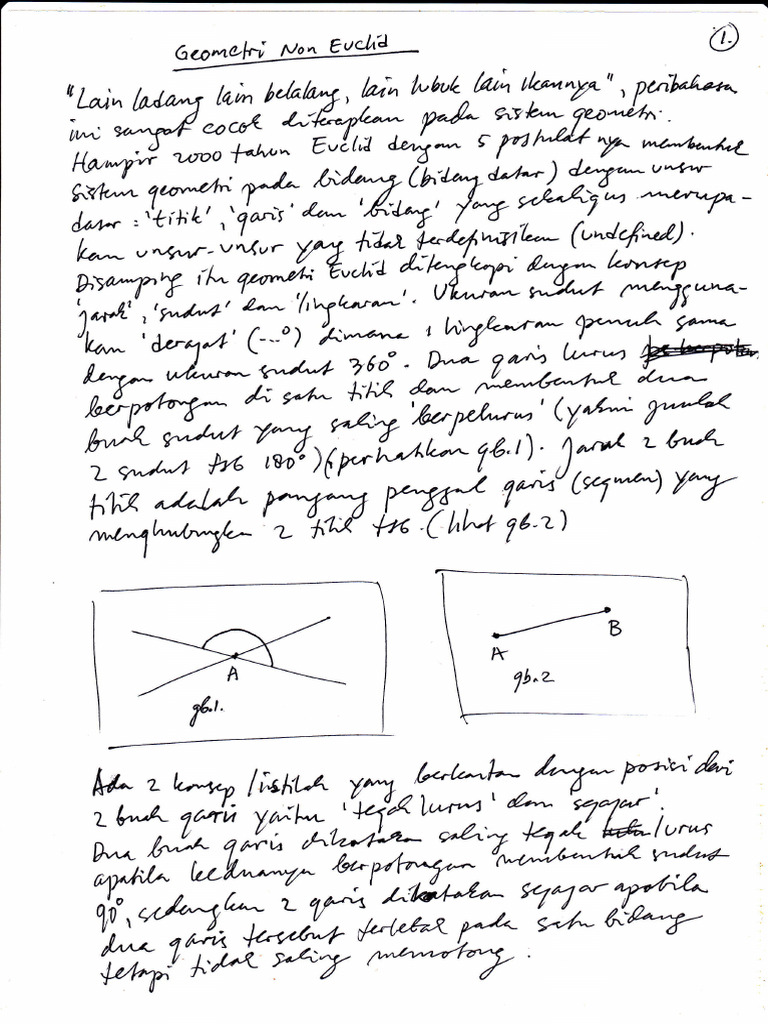 Geometri Non Euclid
1.
"Lain ladang lain belalang, lain lubuk lain ikannya", peribahasa
ini sangat cocok diterapkan pada sistem geometri.
Hampir 2000 tahun Euclid dengan 5 postulat nya membentuk
sistem geometri pada bidang (bidang datar) dengan unsur
dasar: 'titik', 'garis' dan 'bidang' yang sekaligus merupa-
kan unsur-unsur yang tidak terdefinisikan (undefined).
Disamping itu geometri Euclid dilengkapi dengan konsep
'jarak', 'sudut' dan 'lingkaran'. Ukuran sudut mengguna-
kan 'derajat' (...°) dimana 1 lingkaran penuh sama
dengan ukuran sudut 360°. Dua garis lurus
berpotongan di satu titik dan membentuk dua
buah sudut yang saling 'berpelurus' (yakni jumlah
2 sudut tsb 180°) (perhatikan gb.1). Jarak 2 buah
titik adalah panjang penggal garis (segmen) yang
menghubungkan 2 titik tsb. (lihat gb.2)
A
gb.1.
A
B
gb.2
Ada 2 konsep/istilah yang berkaitan dengan posisi dari
2 buah garis yaitu 'tegak lurus' dan sejajar'.
Dua buah garis dikatakan saling tegak lurus
apabila keduanya berpotongan membentuk sudut
90°, sedangkan 2 garis dikatakan sejajar apabila
dua garis tersebut terletak pada satu bidang
tetapi tidak saling memotong.